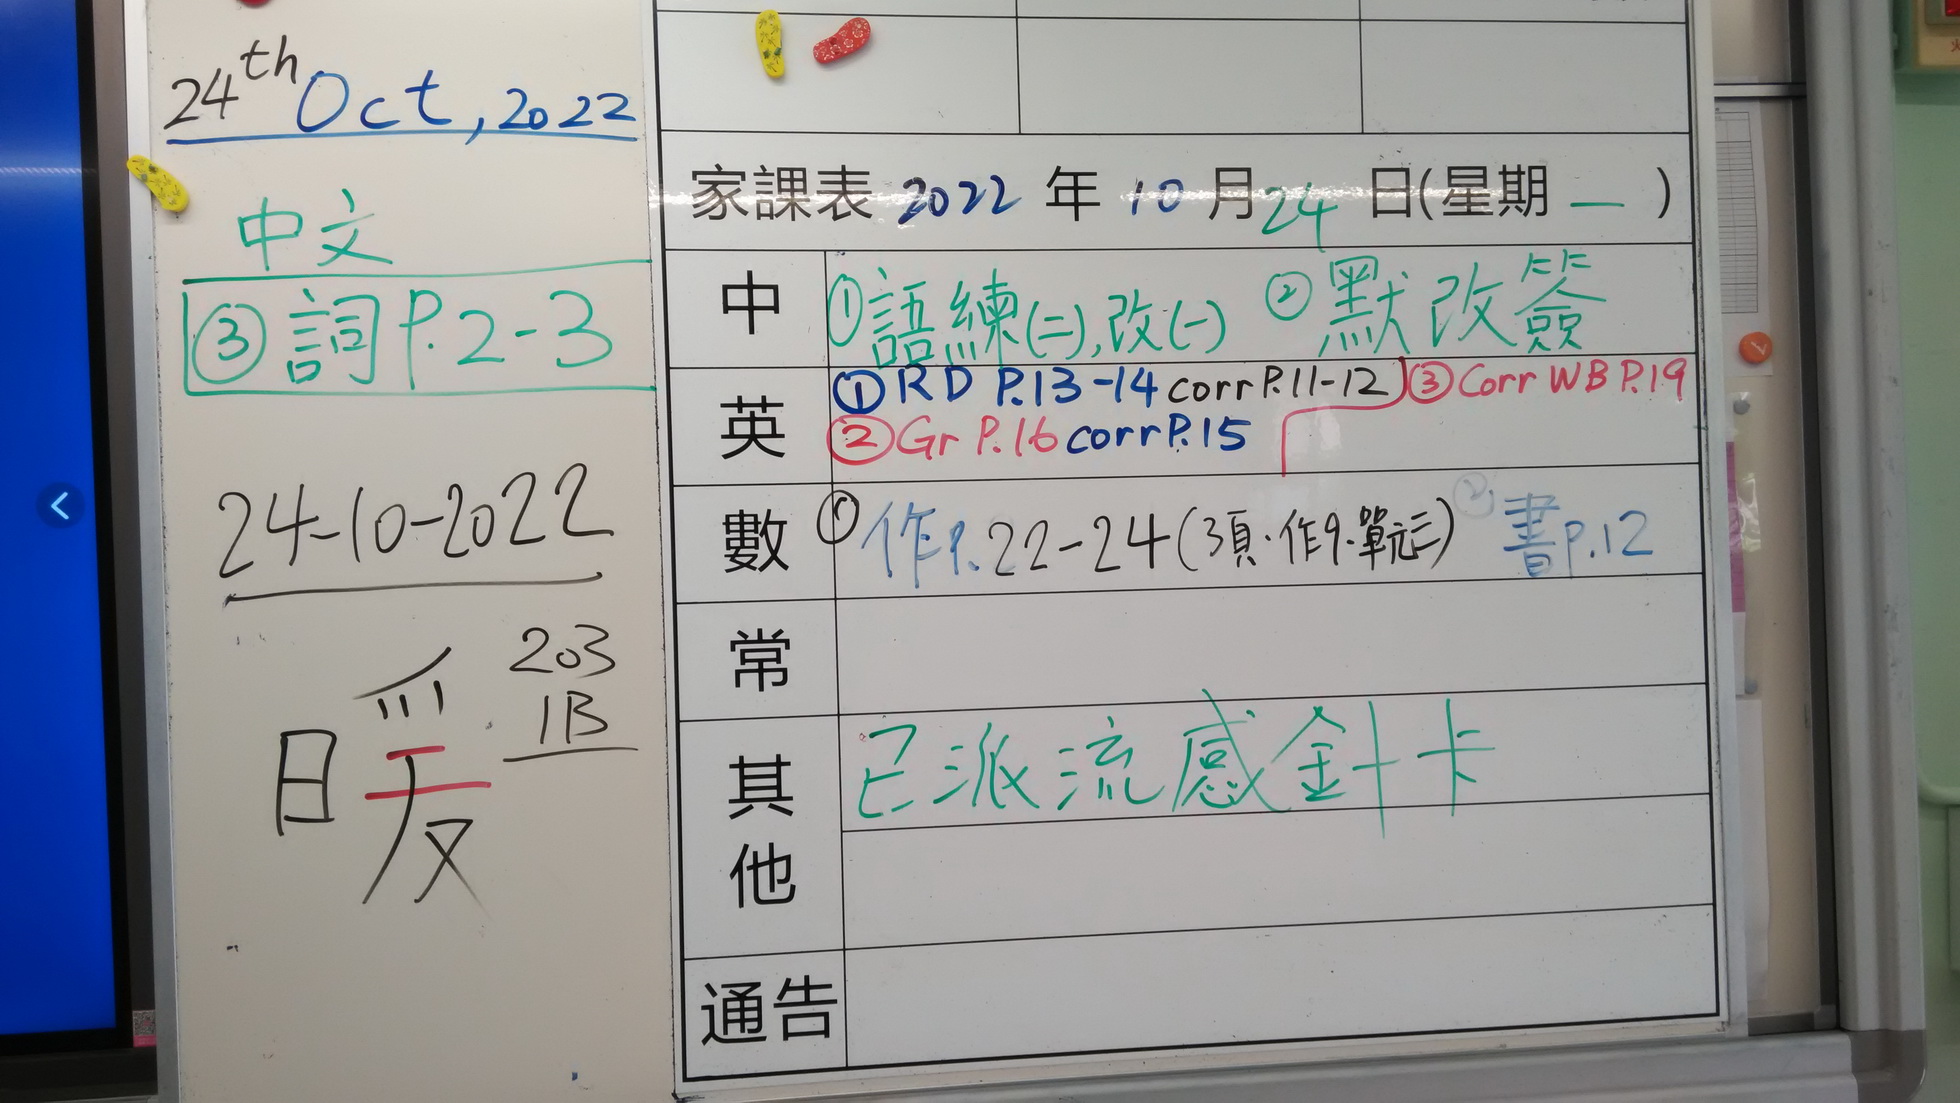 24th Oct, 2022
中文
③ 詞 P.2-3
24-10-2022
暖
203
1B
家課表 2022 年 10 月 24 日(星期 一 )
中
① 語練(二),改(一) ② 默改簽
英
① RD P.13-14 corr P.11-12 ③ Corr WB P.19
② Gr P.16 corr P.15
數
① 作P.22-24(3頁·作9·單元三) ② 書P.12
常
其他
已派流感針卡
通告